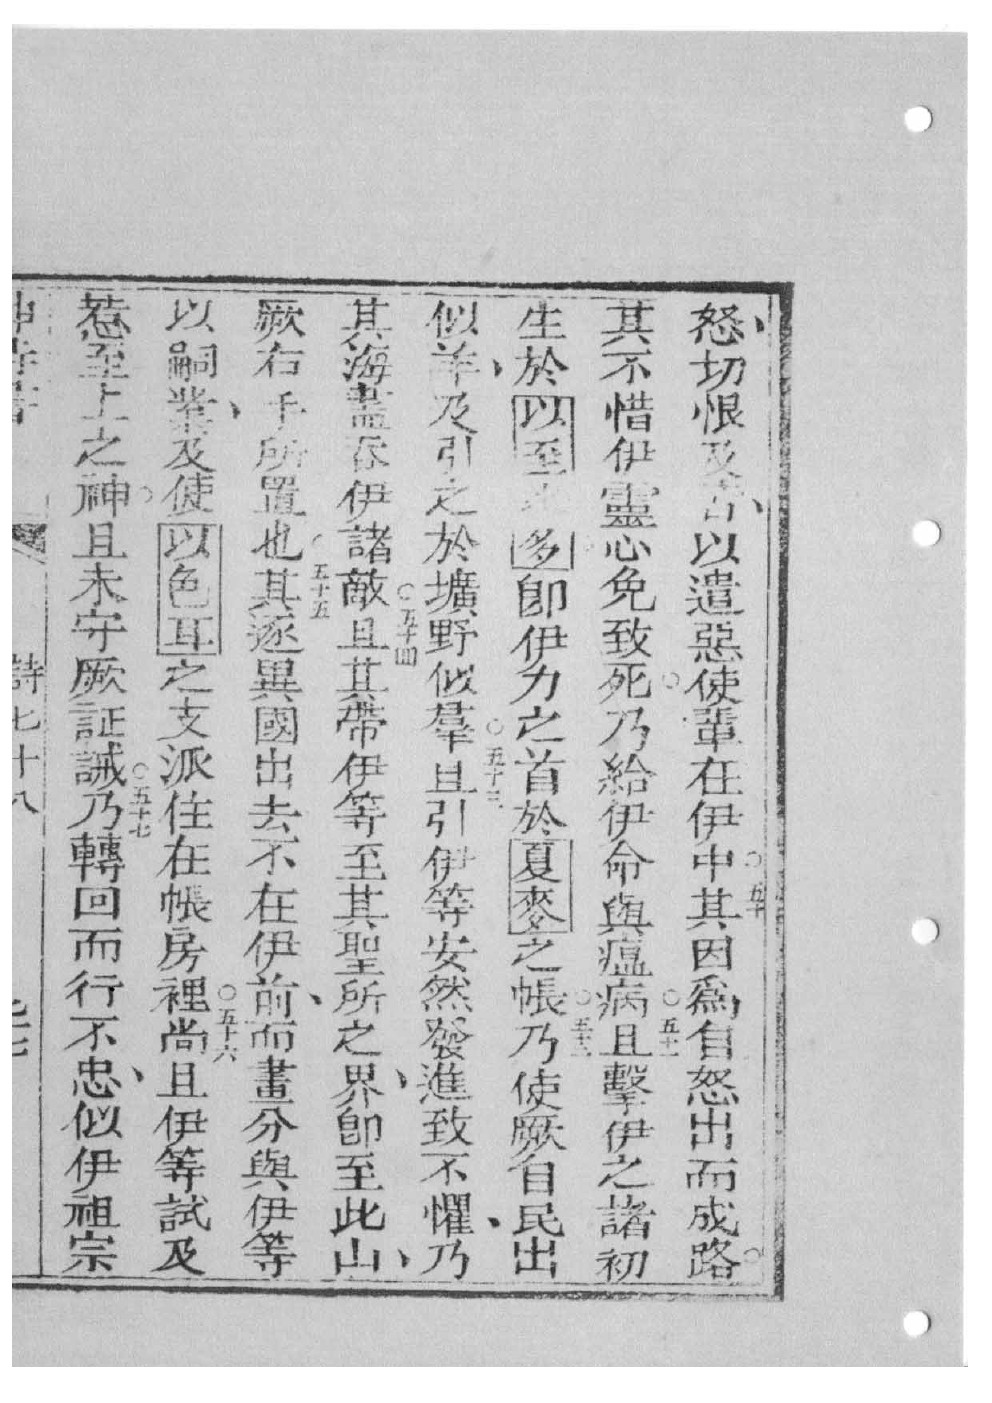 怒、切恨及害、以遣惡使輩在伊中○五十其因爲自怒出而成路○
其不惜伊靈心免致死○乃給伊命與瘟病○五十一且擊伊之諸初
生於以至 多卽伊力之首於夏麥之帳○五十二乃使厥自民出
似羊、及引之於壙野似羣○五十三且引伊等安然發進致不懼、乃
其海盡吞伊諸敵○五十四且其帶伊等至其聖所之界、卽至此山、
厥右手所置也○五十五其逐異國出去不在伊前、而畫分與伊等
以嗣業、及使以色耳之支派住在帳房裡○五十六尚且伊等試及
惹至上之神○且未守厥証誡○五十七乃轉回而行不忠、似伊祖宗
神詩書 詩七十八